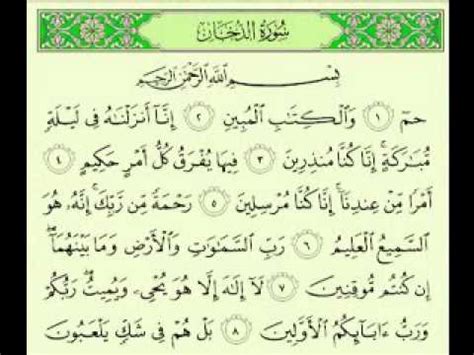 سُورَةُ الدُّخَانِ
بِسْمِ اللَّهِ الرَّحْمَٰنِ الرَّحِيمِ
حمٓ ١ وَالْكِتَابِ الْمُبِينِ ٢ إِنَّا أَنزَلْنَاهُ فِي لَيْلَةٍ
مُّبَارَكَةٍ ۚ إِنَّا كُنَّا مُنذِرِينَ ٣ فِيهَا يُفْرَقُ كُلُّ أَمْرٍ حَكِيمٍ ٤
أَمْرًا مِّنْ عِندِنَا ۚ إِنَّا كُنَّا مُرْسِلِينَ ٥ رَحْمَةً مِّن رَّبِّكَ ۚ إِنَّهُ هُوَ
السَّمِيعُ الْعَلِيمُ ٦ رَبِّ السَّمَاوَاتِ وَالْأَرْضِ وَمَا بَيْنَهُمَا ۖ
إِن كُنتُم مُّوقِنِينَ ٧ لَا إِلَٰهَ إِلَّا هُوَ يُحْيِي وَيُمِيتُ ۖ رَبُّكُمْ
وَرَبُّ آبَائِكُمُ الْأَوَّلِينَ ٨ بَلْ هُمْ فِي شَكٍّ يَلْعَبُونَ